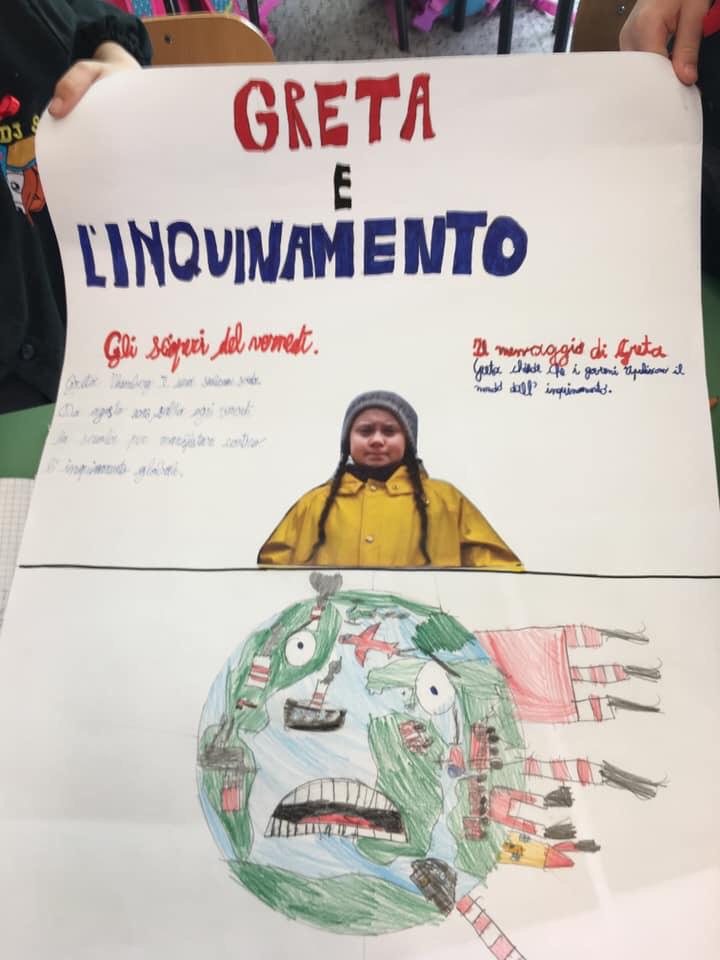 GRETA
E
L'INQUINAMENTO
Gli scioperi del venerdì.
Greta Thunberg è una
Da agosto salta ogni venerdì
la scuola per manifestare contro
l'inquinamento globale.
Il messaggio di Greta
Greta chiede che i governi ripuliscano il
mondo dall'inquinamento.
DJ